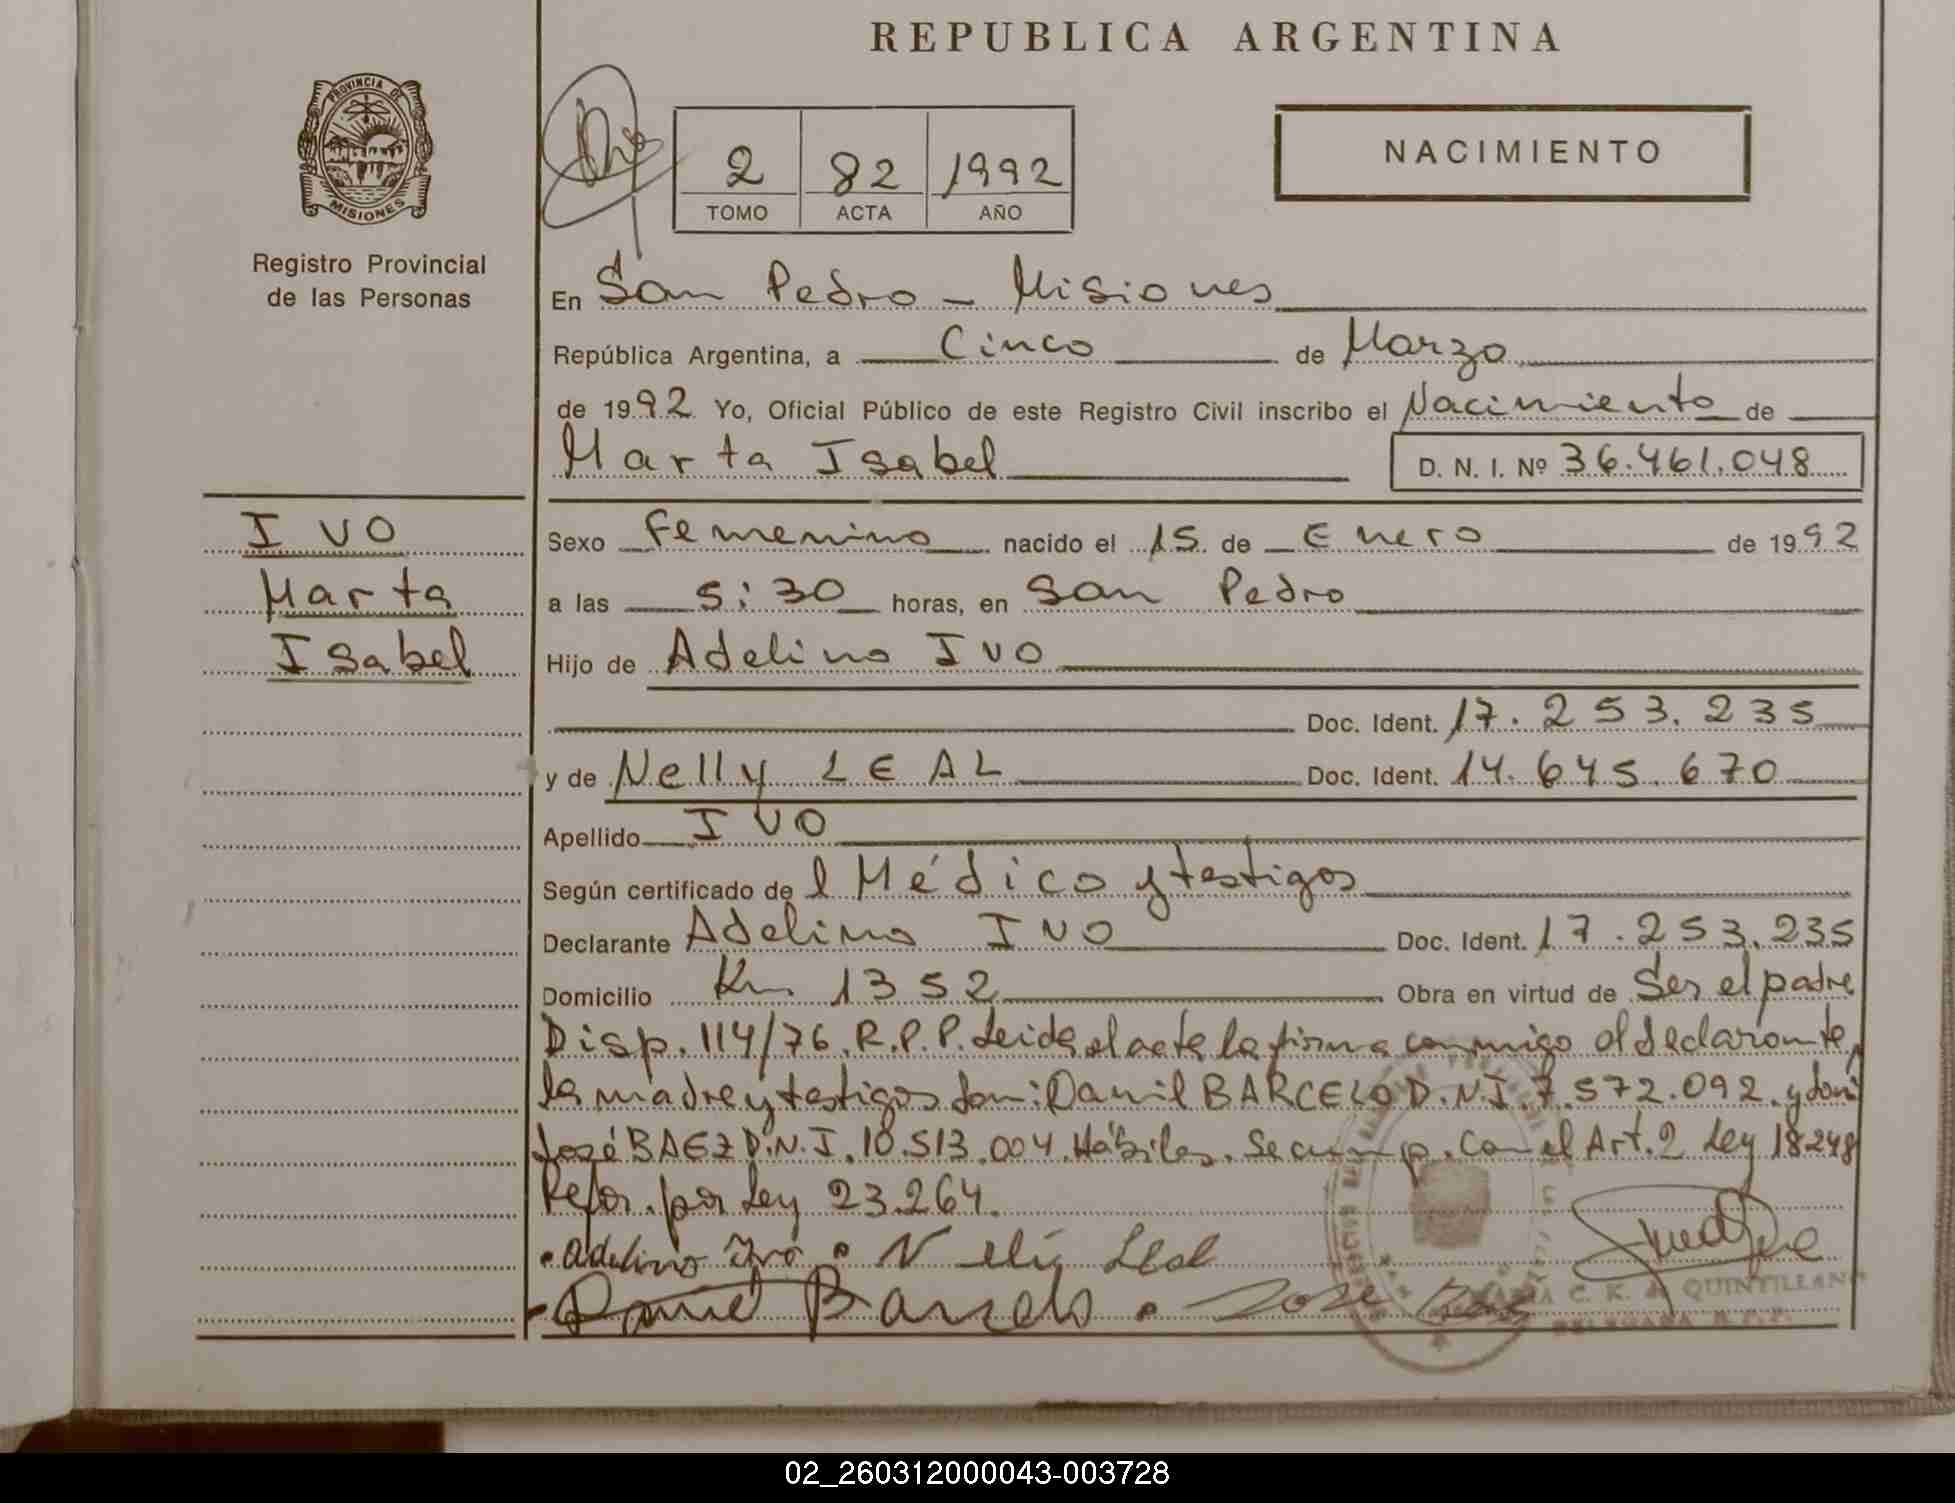 REPUBLICA ARGENTINA
PROVINCIA DE
MISIONES
Registro Provincial
de las Personas
2 82 1992
TOMO ACTA AÑO
NACIMIENTO
En San Pedro - Misiones
República Argentina, a Cinco de Marzo
de 1992 Yo, Oficial Público de este Registro Civil inscribo el Nacimiento de
Marta Isabel D. N. I. Nº 36.461.048
IVO
Marta
Isabel
Sexo Femenino nacido el 15 de Enero de 1992
a las 5:30 horas, en San Pedro
Hijo de Adelino IVO
Doc. Ident. 17.253.235
y de Nelly LEAL Doc. Ident. 14.645.670
Apellido IVO
Según certificado del Médico y testigos
Declarante Adelino IVO Doc. Ident. 17.253.235
Domicilio Km 1352 Obra en virtud de Ser el padre
Disp. 114/76. R.P.P. Leida el acta la firma conmigo el declarante,
la madre y testigos don: Daniel BARCELO D.N.I. 7.572.092. y don:
José BAEZ D.N.I. 10.513.004. Hábiles. Se cump. con el Art. 2 Ley 18248
Refor. por Ley 23.264.
Adelino Ivo Nelli Leal
Daniel Barcelo Jose Baez
C. K. de QUINTILLAN
DELEGADA R.P.P.
02_260312000043-003728